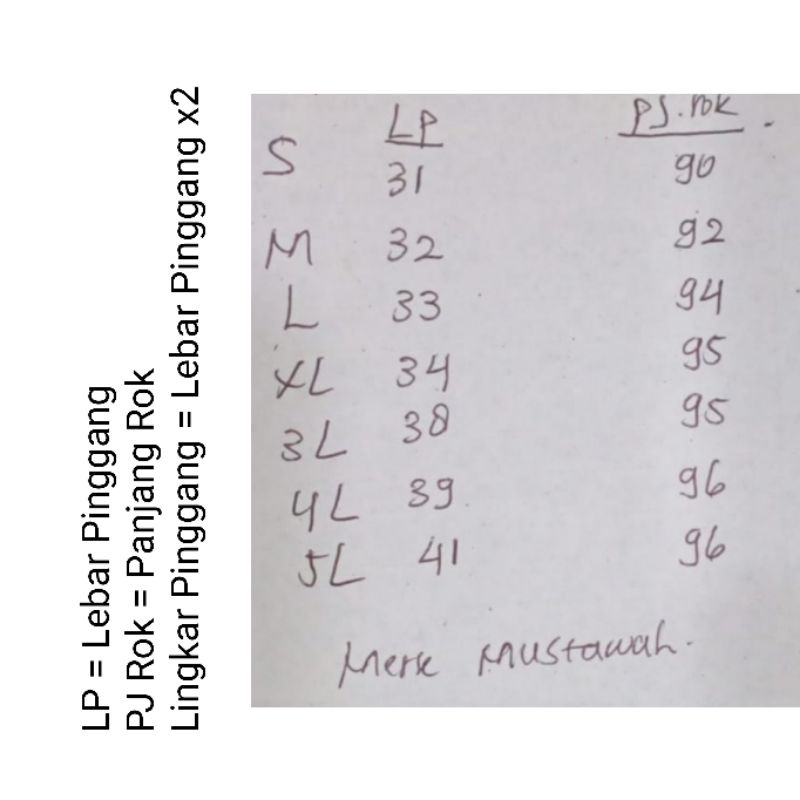 LP = Lebar Pinggang
PJ Rok = Panjang Rok
Lingkar Pinggang = Lebar Pinggang x2
LP PJ.rok
S 31 90
M 32 92
L 33 94
XL 34 95
3L 38 95
4L 39 96
5L 41 96
Merk Mustawah.